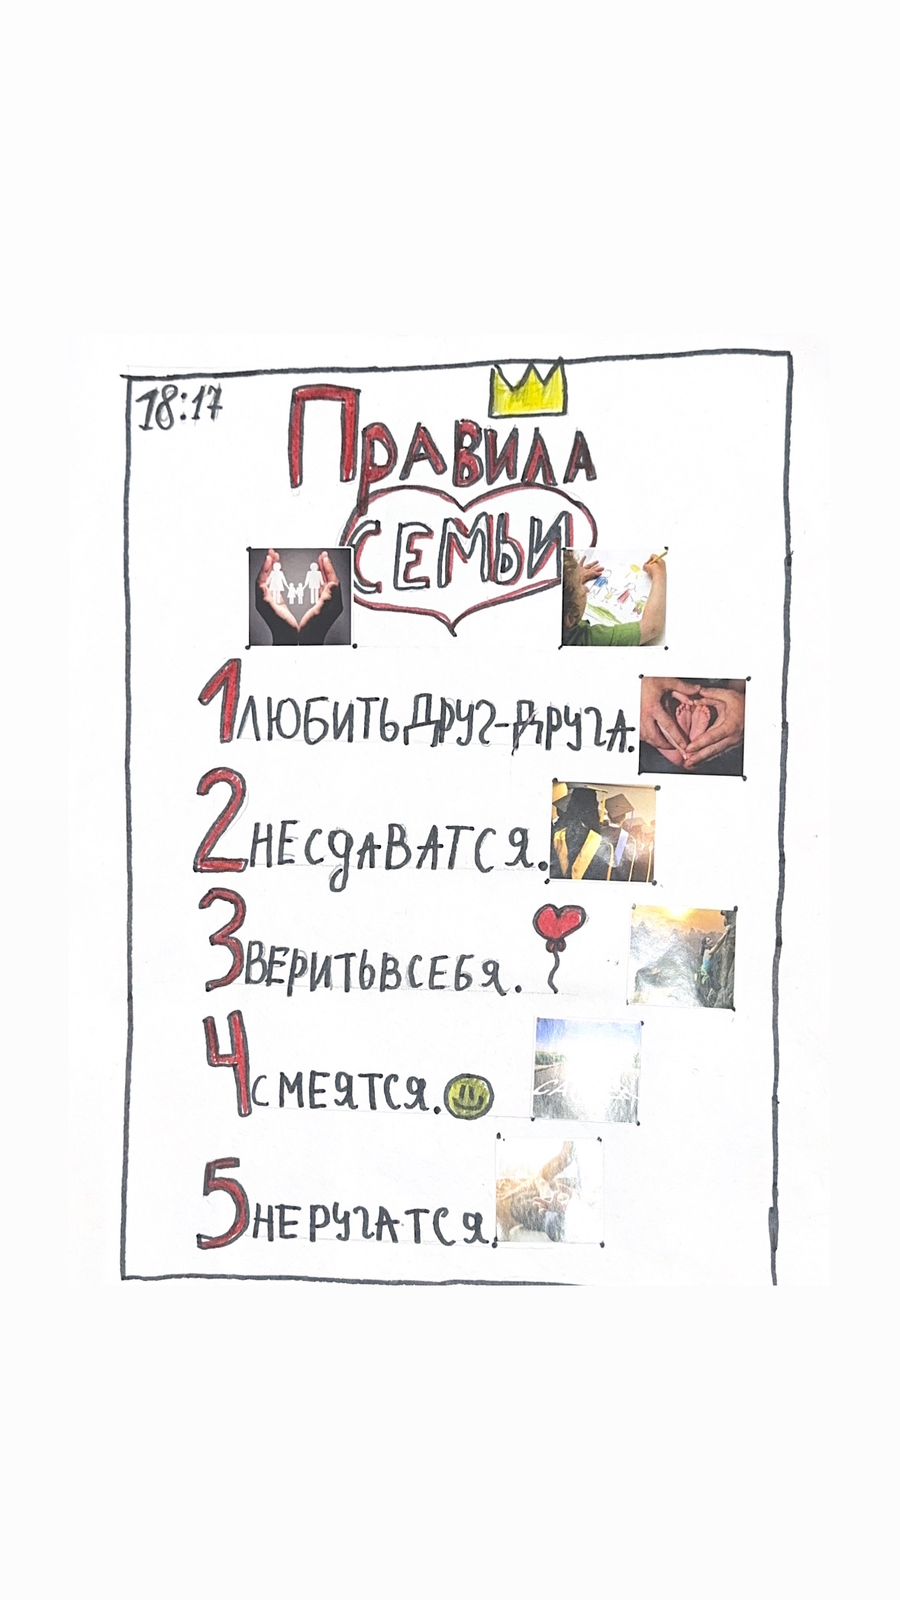 18:17
ПРАВИЛА
СЕМЬИ
1 ЛЮБИТЬ ДРУГ-ДРУГА.
2 НЕ СДАВАТСЯ.
3 ВЕРИТЬ В СЕБЯ.
4 СМЕЯТСЯ.
5 НЕ РУГАТСЯ.